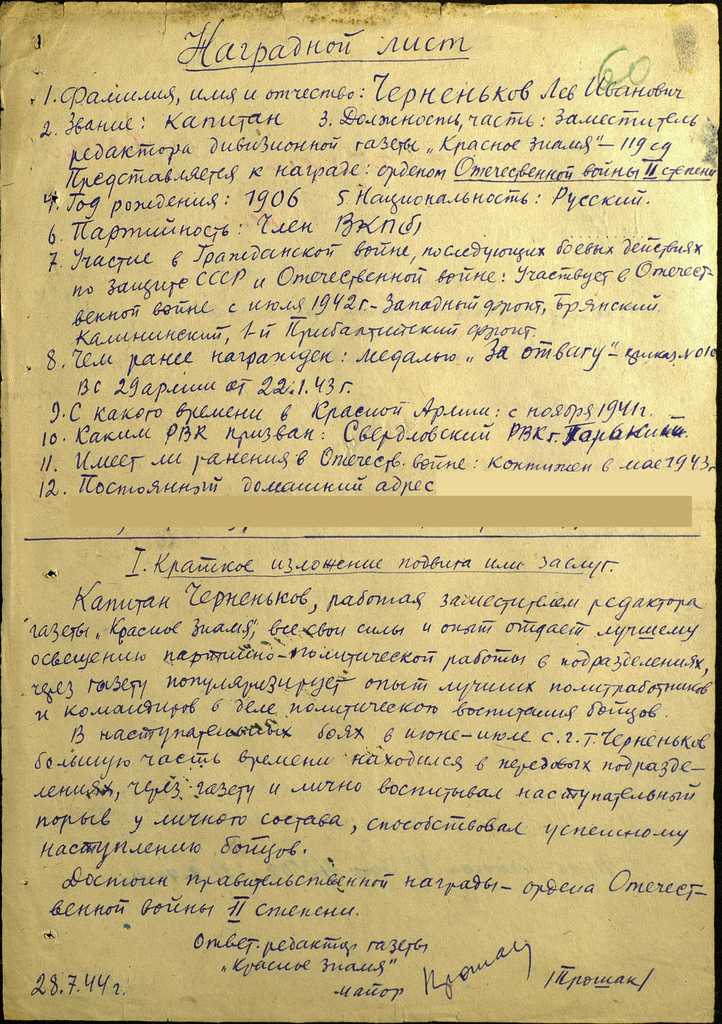 Наградной лист
60
1. Фамилия, имя и отчество: Черненьков Лев Иванович
2. Звание: капитан 3. Должность, часть: Заместитель
редактора дивизионной газеты „Красное знамя" – 119 сд
Представляется к награде: орденом Отечественной войны II степени
4. Год рождения: 1906 5. Национальность: Русский.
6. Партийность: Член ВКП(б)
7. Участие в Гражданской войне, последующих боевых действиях
по защите СССР и Отечественной войне: Участвует в Отечест-
венной войне с июля 1942 г. – Западный фронт, Брянский.
Калининский, 1-й Прибалтийский фронт.
8. Чем ранее награжден: медалью „За отвагу" – приказ № 010
ВС 29 армии от 22.1.43 г.
9. С какого времени в Красной Армии: с ноября 1941 г.
10. Каким РВК призван: Свердловский РВК г.
11. Имеет ли ранения в Отечеств. войне: контужен в мае 1943 г.
12. Постоянный домашний адрес
I. Краткое изложение подвига или заслуг.
Капитан Черненьков, работая заместителем редактора
газеты „Красное знамя", все свои силы и опыт отдает лучшему
освещению партийно-политической работы в подразделениях,
через газету популяризирует опыт лучших политработников
и командиров в деле политического воспитания бойцов.
В наступательных боях в июне-июле с. г. т. Черненьков
большую часть времени находился в передовых подразде-
лениях, через газету и лично воспитывал наступательный
порыв у личного состава, способствовал успешному
наступлению бойцов.
Достоин правительственной награды – ордена Отечест-
венной войны II степени.
Ответ. редактор газеты
„Красное знамя"
майор Прошак /Прошак/
28.7.44 г.